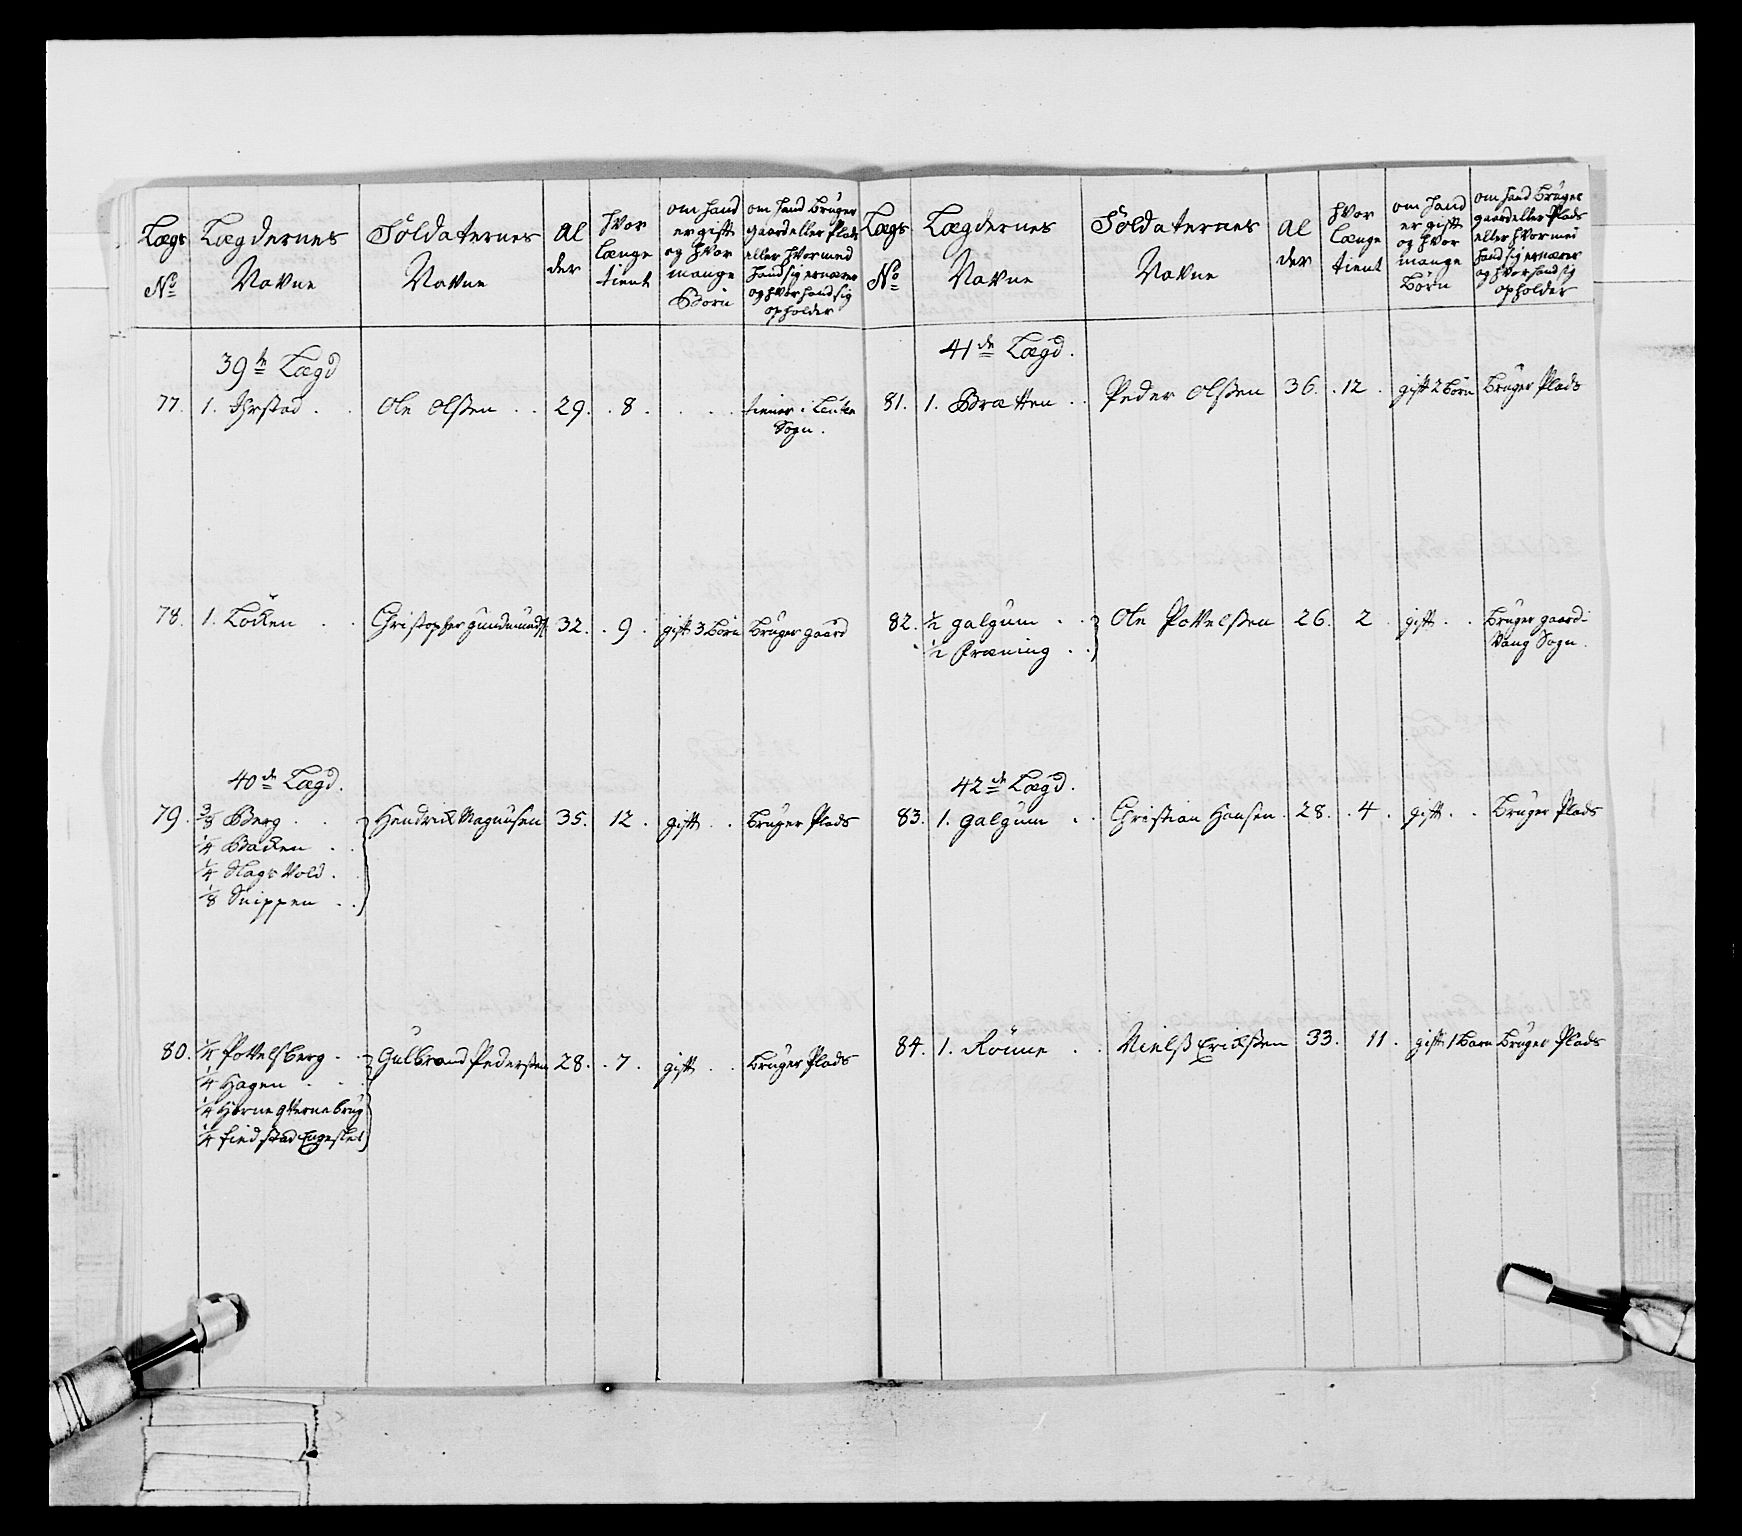 Lægs
No
Lægdernes
Navne
Soldaternes
Navne
Al
der
hvor
længe
tient
om hand
er gift
og hvor
mange
Born
om hand bruger
gaard eller Plads
eller hvormed
hand sig ernærer
og hvor hand sig
opholder
39te Lægd
77. 1. . . Ole Olsen . . 29. . 8 . . . . tiener i
Sogn .
78. 1. Löcken . . Christopher 32. . 9 . gift 3 Born bruger gaard
40de Lægd.
79. 3/8 Berg . . Hendrick Magnusen 35. 12 . gift . . bruger Plads
1/4 Backen . .
1/4 Slags Vold .
1/8 Snippen . .
80. 1/4 Povelsberg . . Gulbrand Pedersen 28. . 7 . gift . . bruger Plads
1/4 Hagen . . .
1/4 Horne
1/4 findstad
Lægs
No
Lægdernes
Navne
Soldaternes
Navne
Al
der
hvor
længe
tient
om hand
er gift
og hvor
mange
Börn
om hand bruger
gaard eller Plads
eller hvormed
hand sig ernærer
og hvor hand sig
opholder
41de Lægd.
81. 1. Bratten . . Peder Olsen 36. . 12 . gift 2 Börn bruger Plads
82. 1/2 galgum . . Ole Povelsen 26. 2 . gift . . bruger gaard i
1/2 Præning . . Vang Sogn .
42de Lægd.
83. 1. galgum . . Christian Hansen . 28. . 4 . gift . . bruger Plads
84. 1. Rönne . . Niels Ericksen 33. 11 . gift 1 Barn bruger Plads